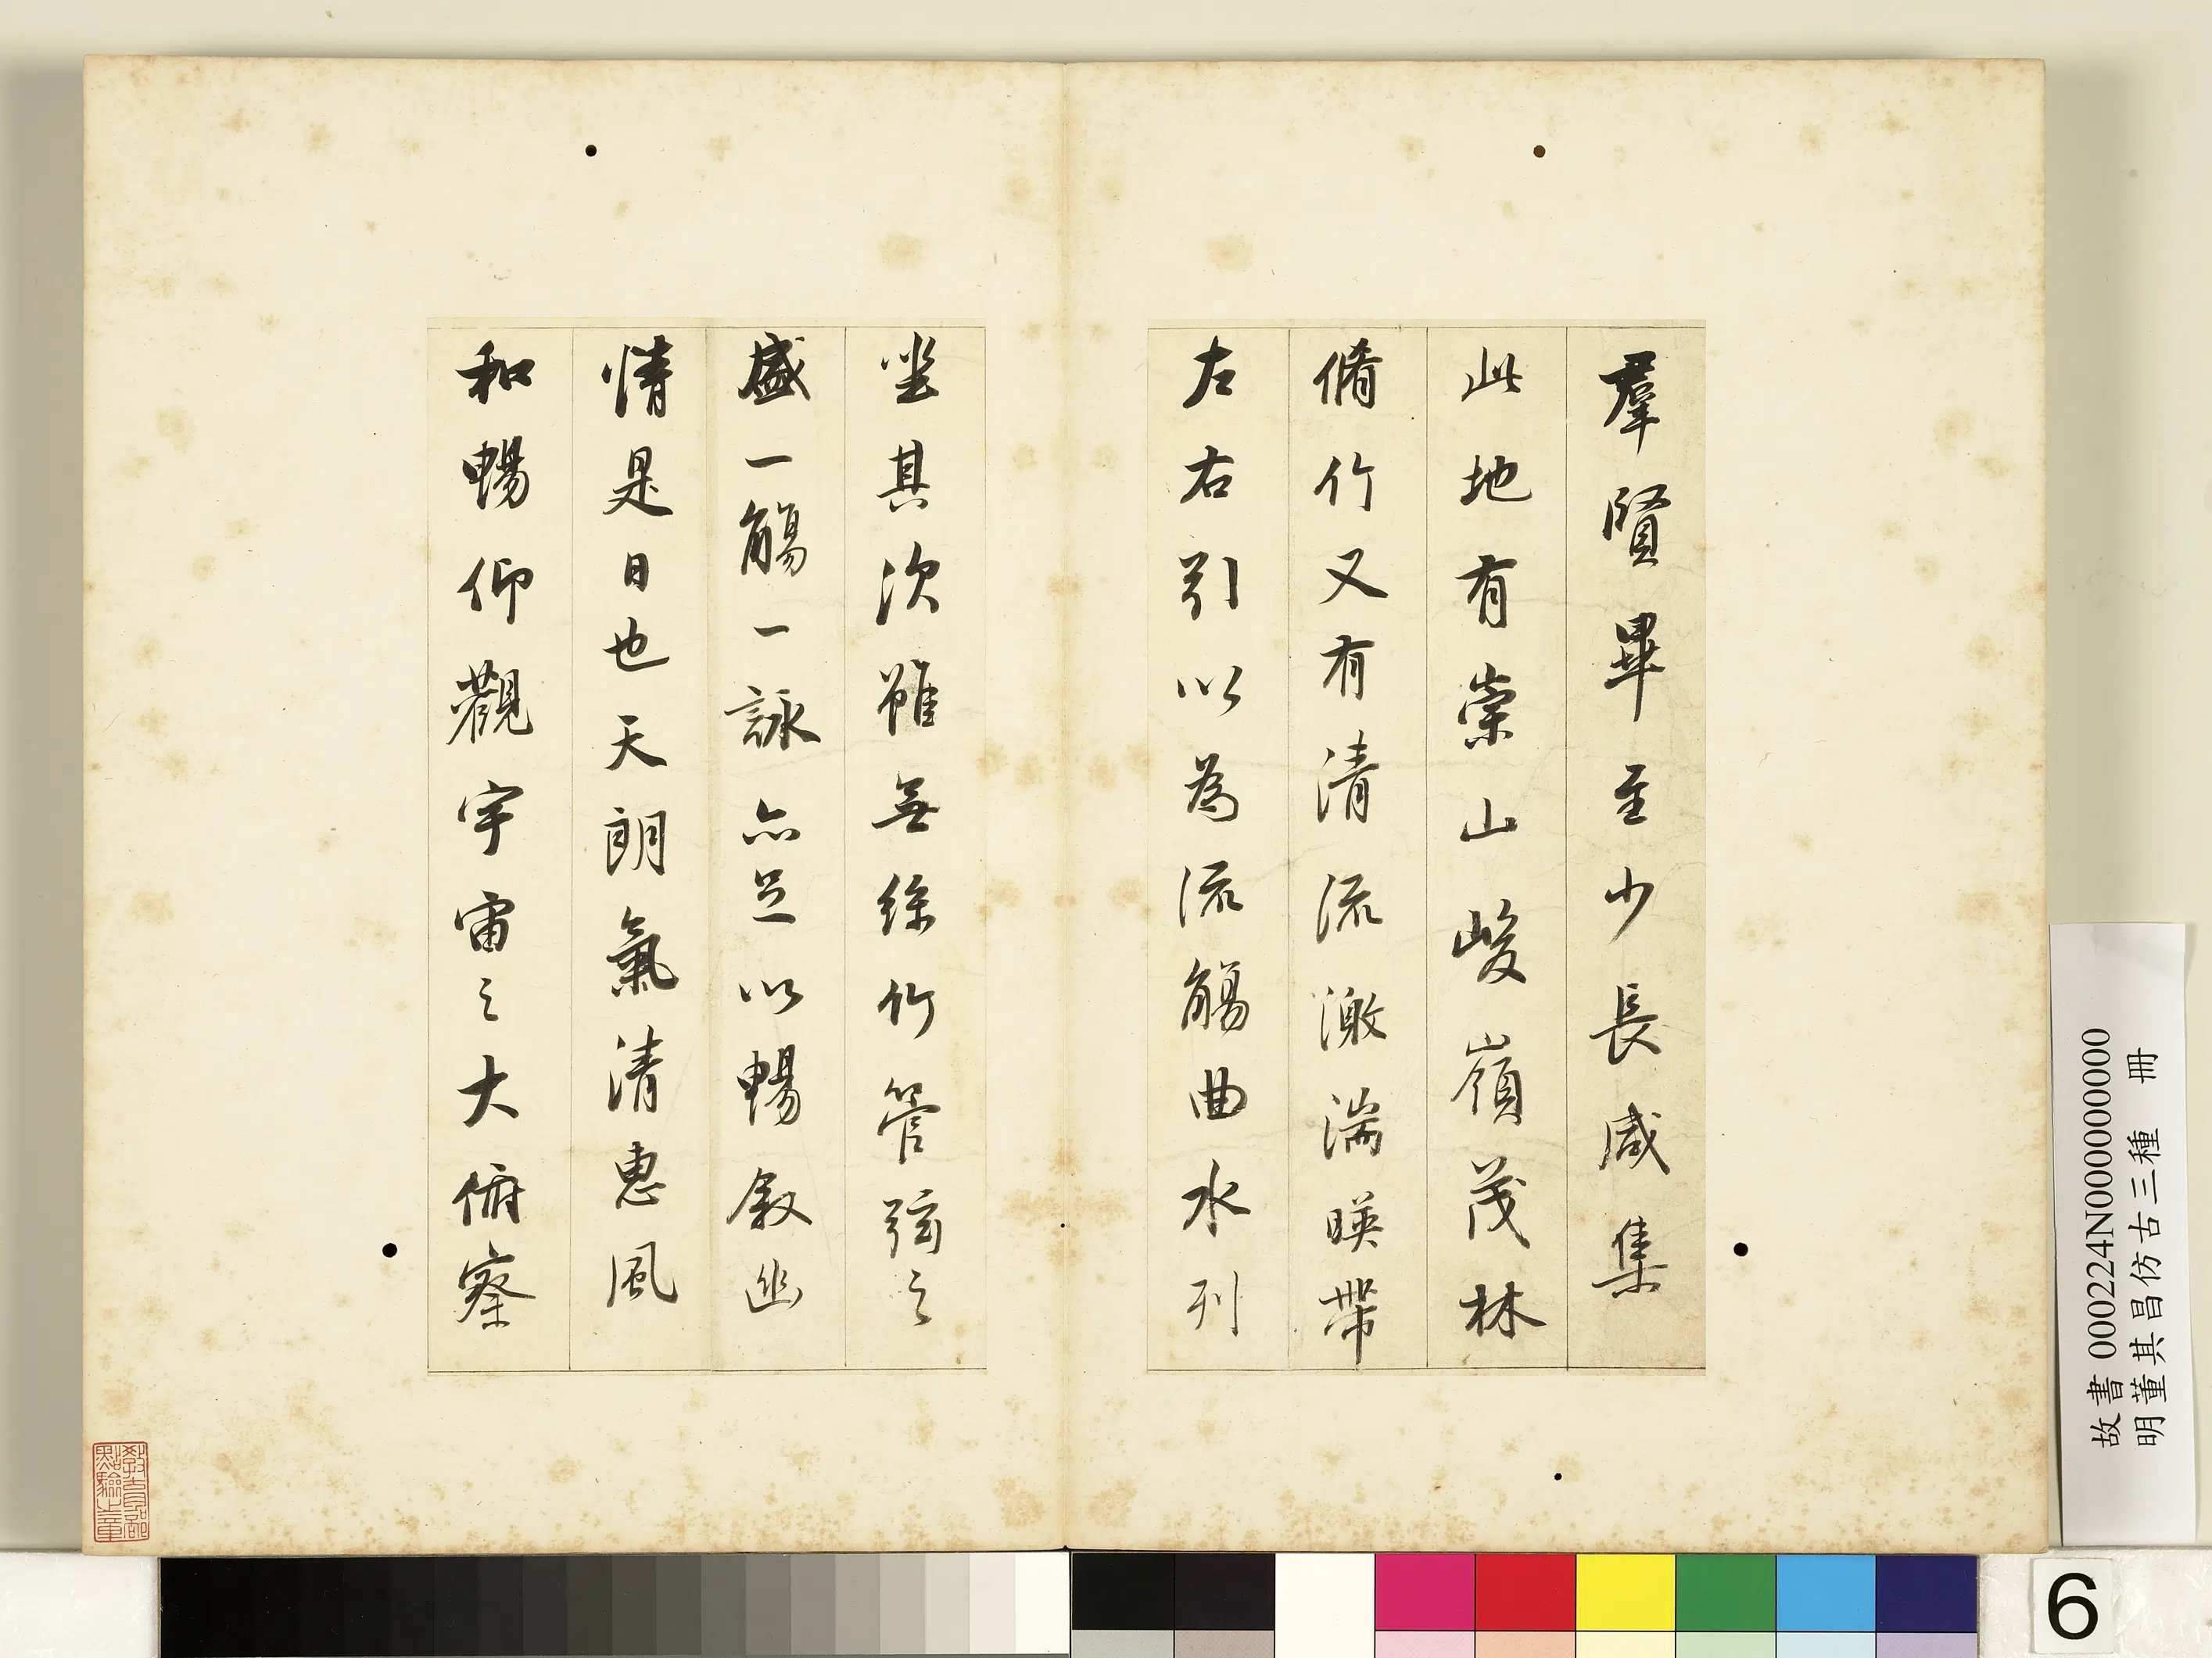 羣賢畢至少長咸集
此地有崇山峻嶺茂林
脩竹又有清流激湍暎帶
左右引以為流觴曲水列
坐其次雖無絲竹管弦之
盛一觴一詠亦足以暢叙幽
情是日也天朗氣清惠風
和暢仰觀宇宙之大俯察
教育部
點驗之章
故書 000224N000000000
明董其昌仿古三種 冊
6